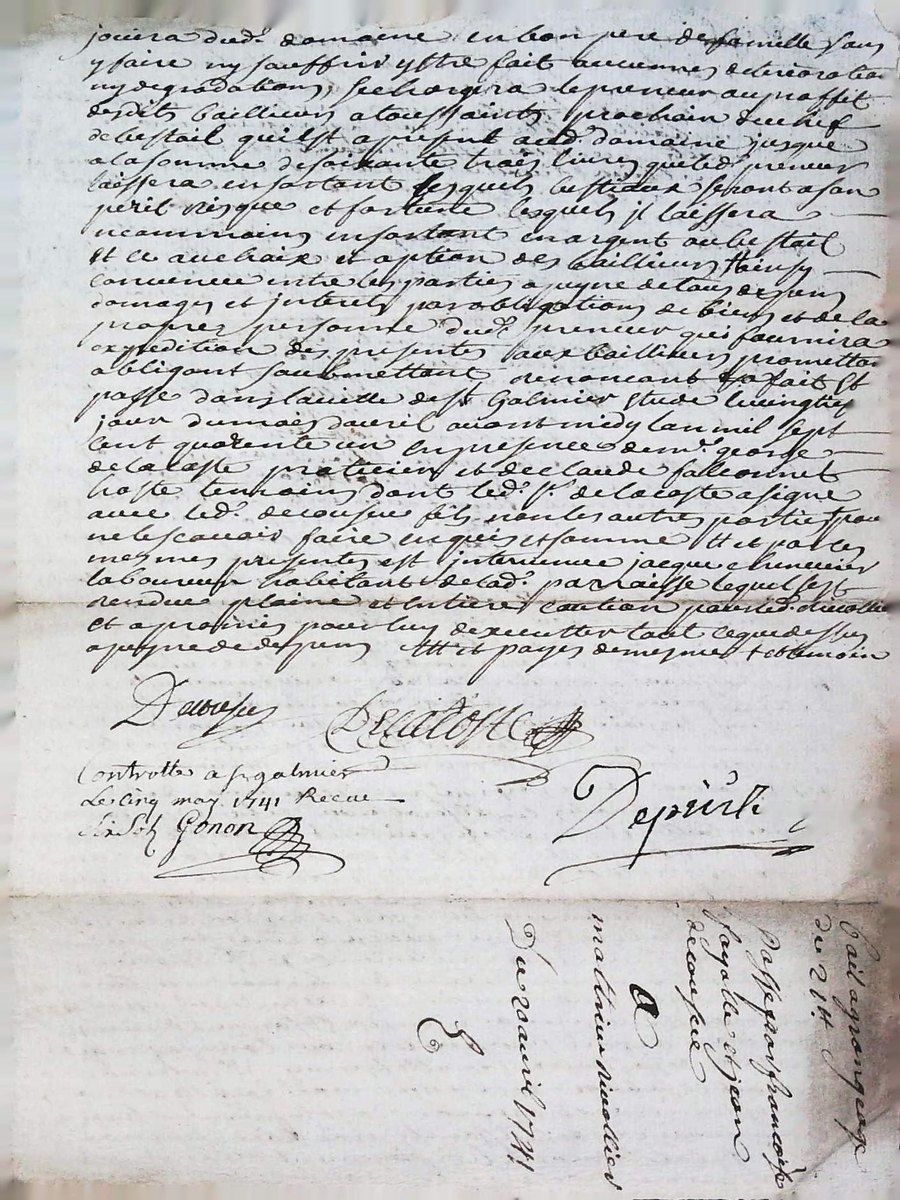 jouira dud.t domaine en bon pere de famille sans
y faire ny souffrir ystre fait aucunnes deterioration
ny degradations, se chargera le preneur au proffit
desdits bailleurs a toussaints prochain du chef
de bestail qui est a present aud.t domaine jusque
a la somme de soixante trois livres que led.t preneur
laissera en sortant lesquels bestiaux seront a son
peril risque et fortune lesquels jl laissera
neammoins en sortant en argent ou bestail
et ce au choix et option des bailleurs Ainsy
convenue entre les parties a peyne de tous depens
domages et interets par obligations de biens et de la
propres personne dud.t preneur qui fournira
expedition des presentes aux bailleurs promettan
obligant soubmettant renoncant fait Et
passe dans la ville de St Galmier Etude le vingtie
jour du mois d'avril avant midy l'an mil sept
cent quarente un en presence de m.r george
de la coste praticien et de claude falconnet
hoste temoins dont led.t s.r de la coste a signe
avec led.t decousu fils non les autres parties pour
ne le scavoir faire enquis et somme Et et par les
mesmes presentes est intervenue jacque
laboureur habitant de lad.t parroisse lequel s'est
rendue plaine et entiere caution pour led.t
et a promis pour luy d'executter tout ce que dessus
a peyne de depens Et et payes de mesmes
Delacoste
Controlle a St galmier
Le Cinq may 1741 Recue
Six Sols Gonon
Bail a grangeage
Passe par francoise
fayolle et jean
a
mathieu
Du 20 avril 1741